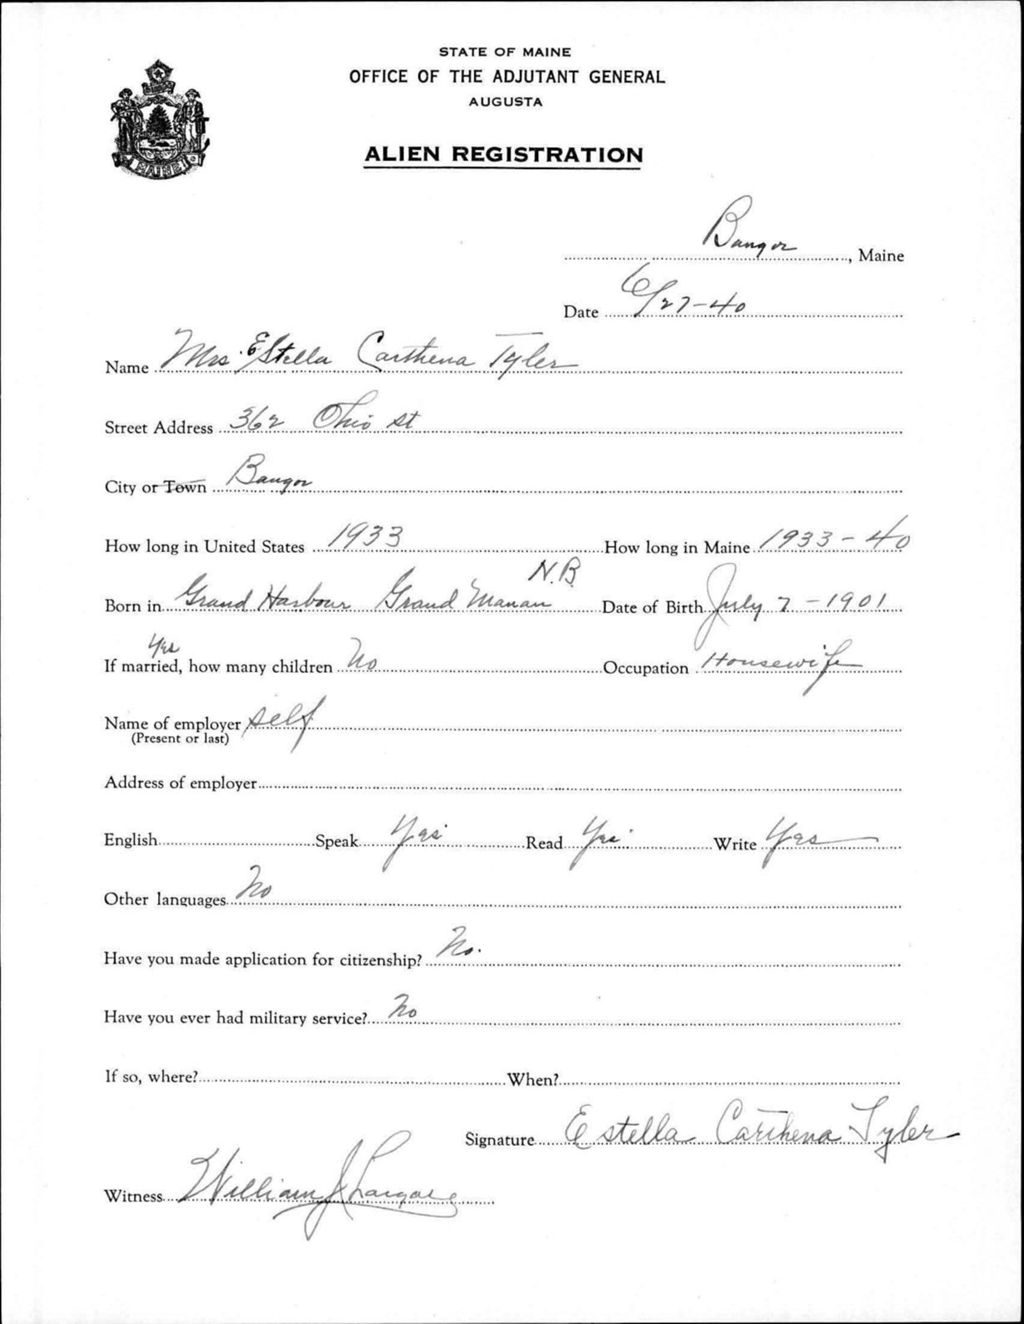 STATE OF MAINE
OFFICE OF THE ADJUTANT GENERAL
AUGUSTA
ALIEN REGISTRATION
MAINE
Bangor, Maine
Date 6/27-40
Name Mrs. Estella Carthena Tyler
Street Address 362 Ohio St
City or Town Bangor
How long in United States 1933 How long in Maine 1933-40
Born in Grand Harbour Grand Manan N.B. Date of Birth July 7-1901
Yes
If married, how many children No Occupation Housewife
Name of employer self
(Present or last)
Address of employer
English Speak Yes Read Yes Write Yes
Other languages No
Have you made application for citizenship? No.
Have you ever had military service? No
If so, where? When?
Signature Estella Carthena Tyler
Witness William J